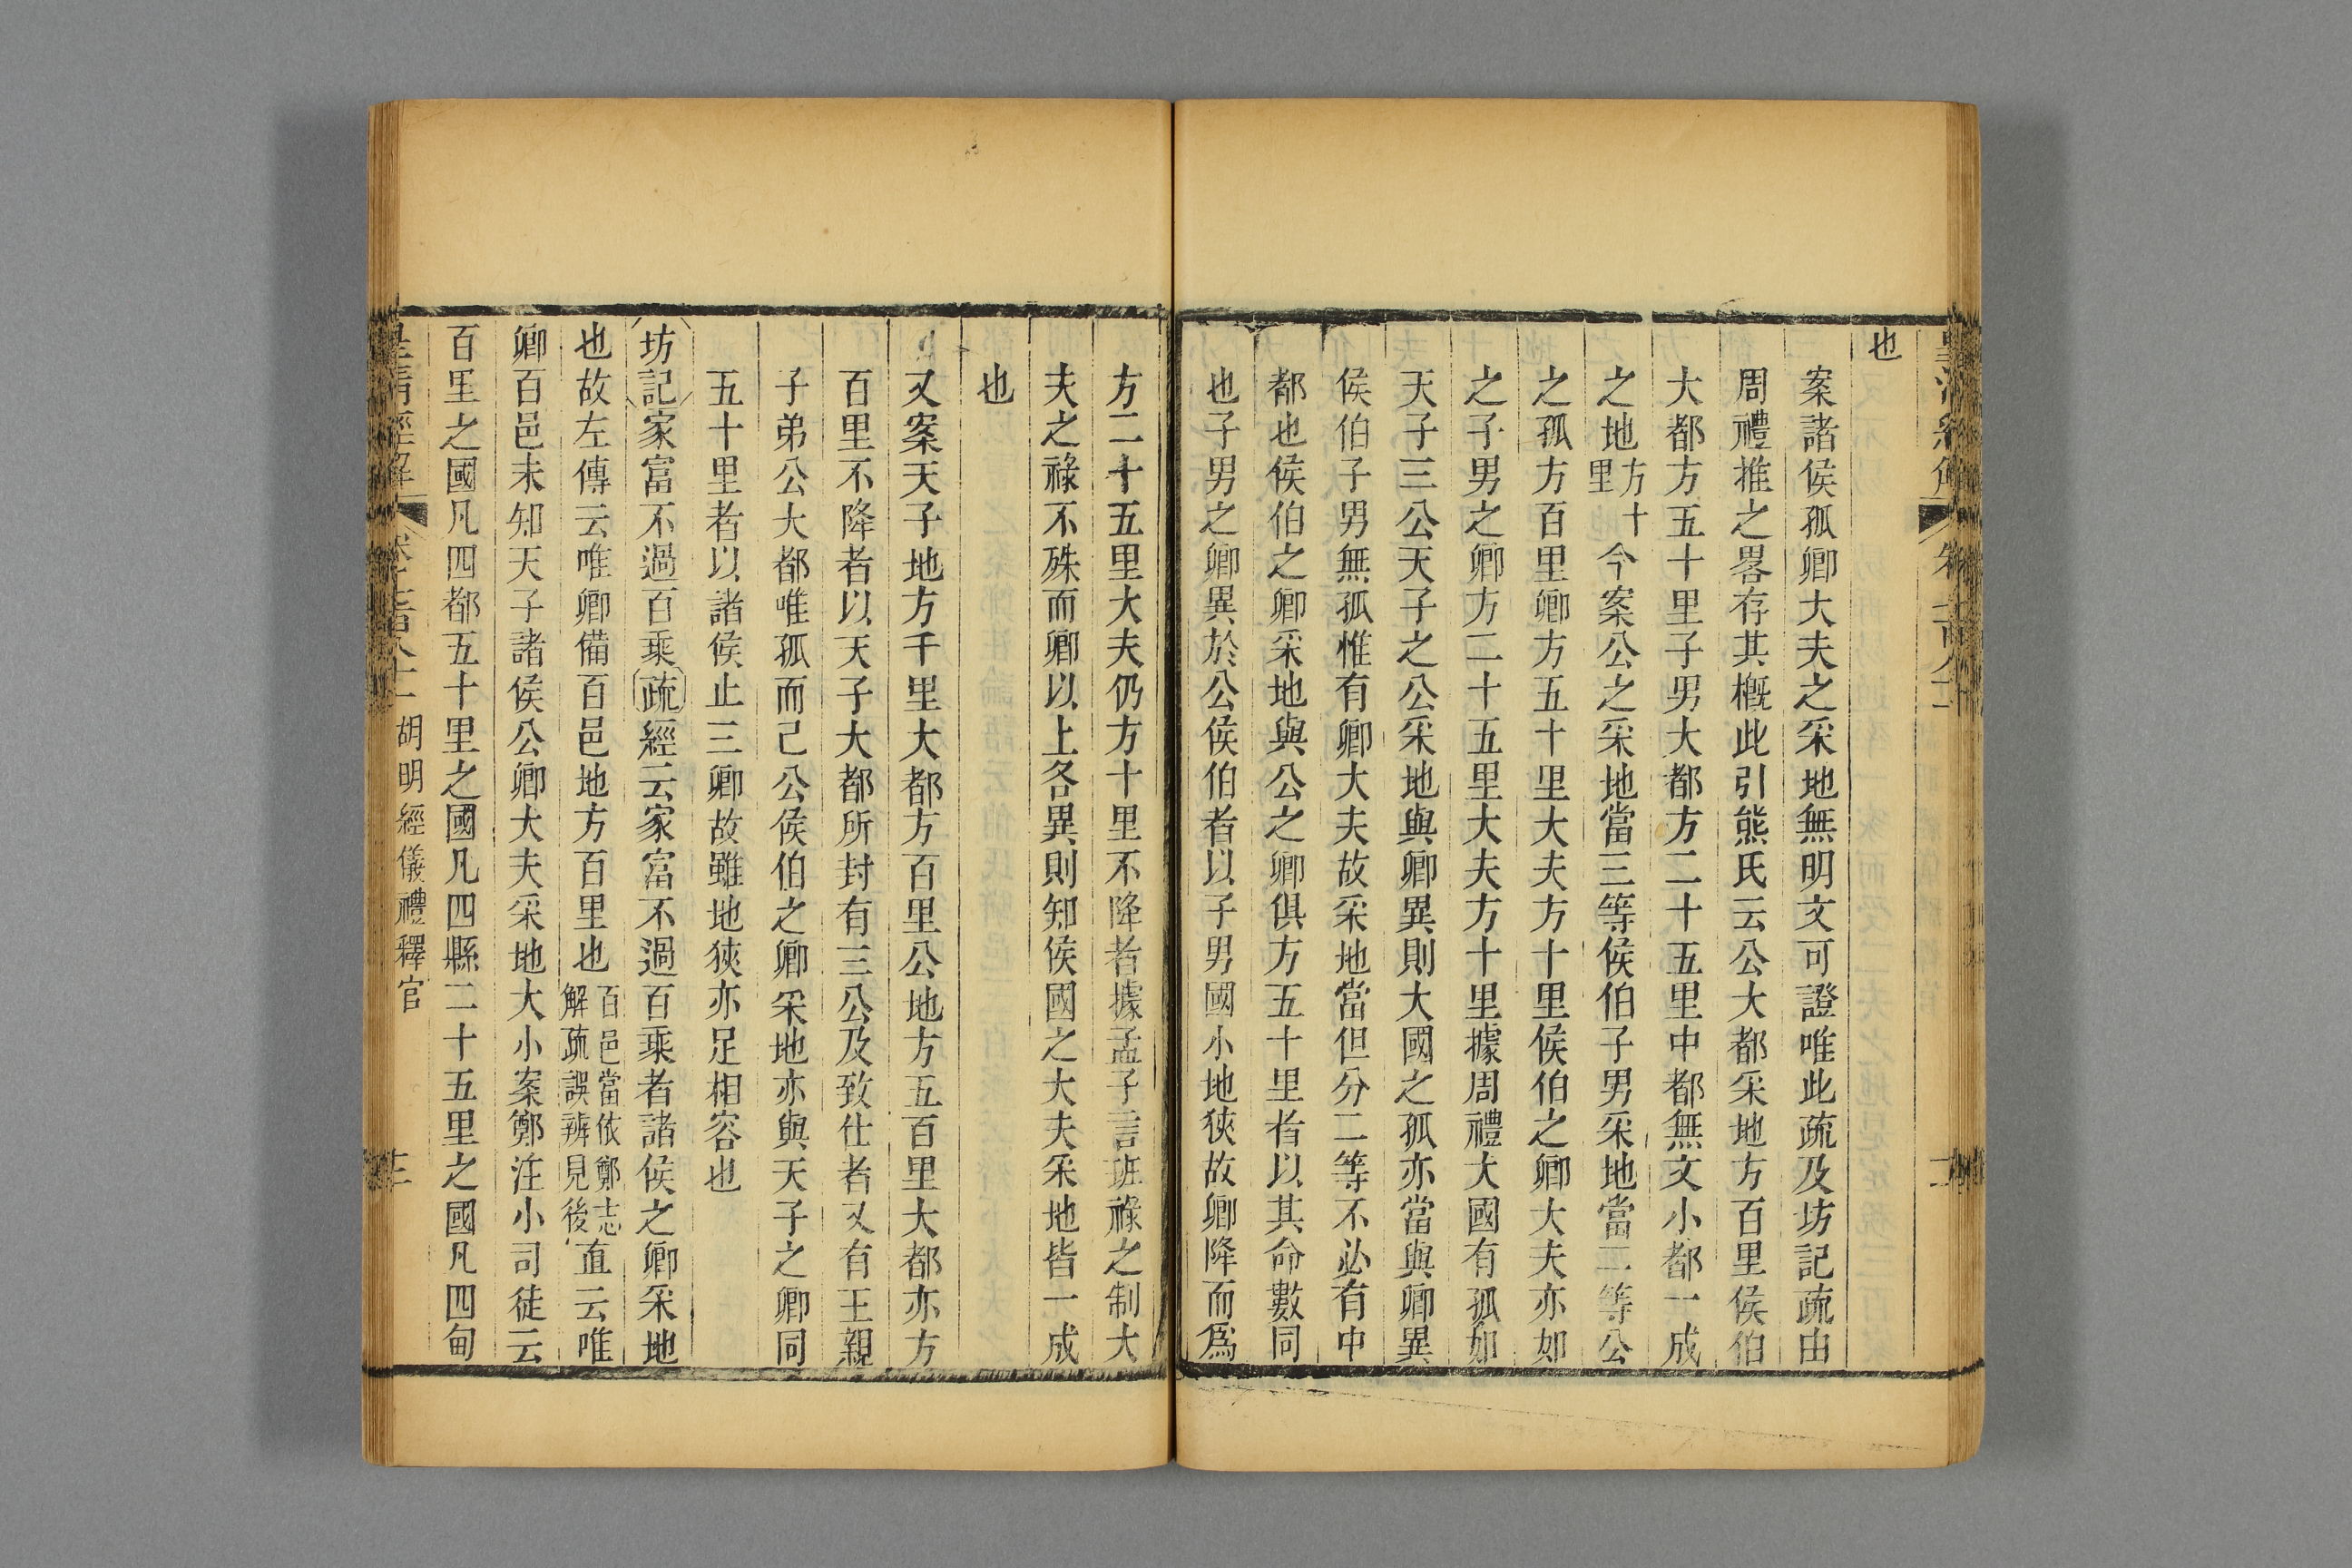 也
案諸侯孤卿大夫之采地無明文可證唯此疏及坊記疏由
周禮推之畧存其槪此引熊氏云公大都采地方百里侯伯
大都方五十里子男大都方二十五里中都無文小都一成
之地方十里今案公之采地當三等侯伯子男采地當二等公
之孤方百里卿方五十里大夫方十里侯伯之卿大夫亦如
之子男之卿方二十五里大夫方十里據周禮大國有孤如
天子三公天子之公采地與卿異則大國之孤亦當與卿異
侯伯子男無孤惟有卿大夫故采地當但分二等不必有中
都也侯伯之卿采地與公之卿俱方五十里者以其命數同
也子男之卿異於公侯伯者以子男國小地狹故卿降而爲
方二十五里大夫仍方十里不降者據孟子言班祿之制大
夫之祿不殊而卿以上各異則知侯國之大夫采地皆一成
也
又案天子地方千里大都方百里公地方五百里大都亦方
百里不降者以天子大都所封有三公及致仕者又有王親
子弟公大都唯孤而已公侯伯之卿采地亦與天子之卿同
五十里者以諸侯止三卿故雖地狹亦足相容也
坊記家富不過百乘疏經云家富不過百乘者諸侯之卿采地
也故左傳云唯卿備百邑地方百里也百邑當依鄭志解疏誤辨見後直云唯
卿百邑未知天子諸侯公卿大夫采地大小案鄭注小司徒云
百里之國凡四都五十里之國凡四縣二十五里之國凡四甸
皇清經解 胡明經儀禮釋官